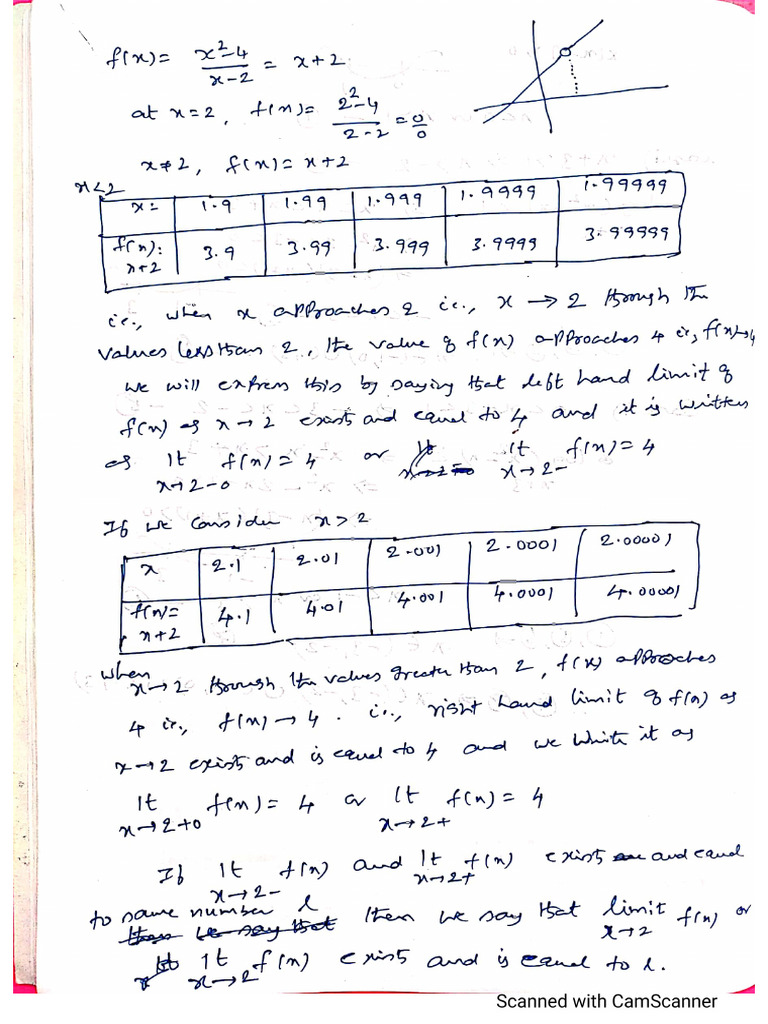 f(x) = x²-4 / x-2 = x+2
at x=2, f(x) = 2²-4 / 2-2 = 0/0
x≠2, f(x) = x+2
x<2
x = 1.9 1.99 1.999 1.9999 1.99999
f(x): x+2 3.9 3.99 3.999 3.9999 3.99999
ie., when x approaches 2 ie., x → 2 through the
values less than 2, the value of f(x) approaches 4 ie, f(x)→4
we will express this by saying that left hand limit of
f(x) as x→2 exist and equal to 4 and it is written
as lt x→2-0 f(x) = 4 or lt x→2- f(x) = 4
If we consider x>2
x 2.1 2.01 2.001 2.0001 2.00001
f(x)= x+2 4.1 4.01 4.001 4.0001 4.00001
when
x→2 through the values greater than 2, f(x) approaches
4 ie., f(x) → 4. ie., right hand limit of f(x) as
x→2 exist and is equal to 4 and we write it as
lt x→2+0 f(x) = 4 or lt x→2+ f(x) = 4
If lt x→2- f(x) and lt x→2+ f(x) exist and equal
to same number l then we say that limit x→2 f(x) or
lt x→2 f(x) exist and is equal to l.
Scanned with CamScanner